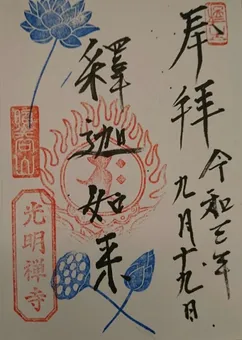 奉拝
令和三年九月十九日
釋迦如来
光明禅寺